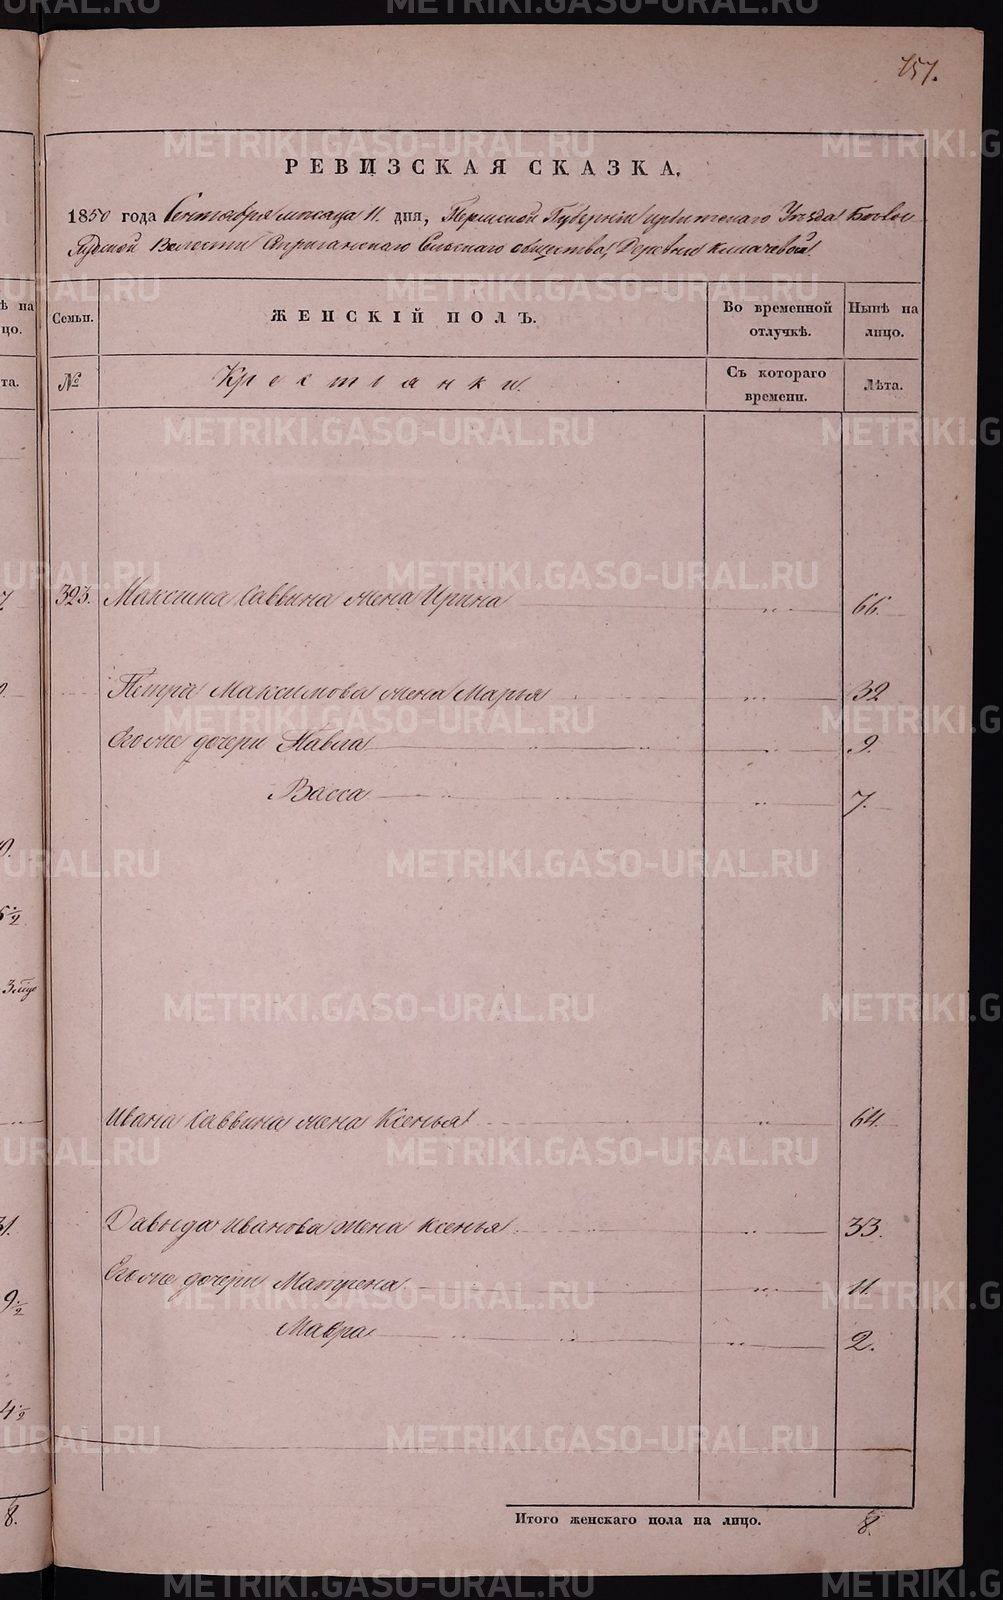 157.
РЕВИЗСКАЯ СКАЗКА.
1850 года Сентября месяца 11. дня, Пермской Губернии Ирбитскаго Уезда
Волости Сельскаго общества, Деревни Ключевой.
Семьи.
ЖЕНСКІЙ ПОЛЪ.
Во временной отлучкѣ.
Нынѣ на лицо.
№
Крестьянки.
Съ котораго времени.
Лѣта.
323. Максима Саввина жена Ирина 66.
Петра Максимова жена Марья 32
Его же дочери Павла 9.
Васса 7.
Ивана Саввина жена Ксенья 64.
Давыда Иванова жена Ксенья 33.
Его же дочери Матрена 11.
Мавра 2.
Итого женскаго пола на лицо. 8.
METRIKI.GASO-URAL.RU